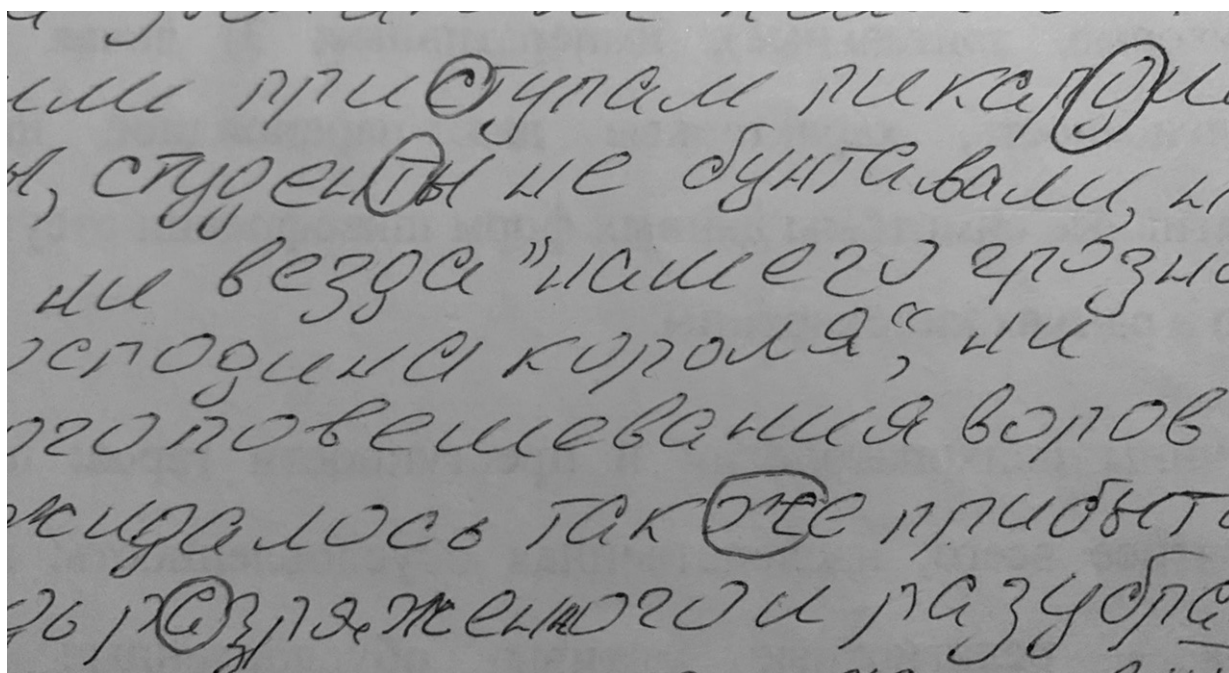 ими приступам пикардий
ы, студенты не бунтавали, н
ни везда "нашего грозно
осподина короля", ни
ого повешевания воров
жидалось также прибыти
дь разряженного и разубра